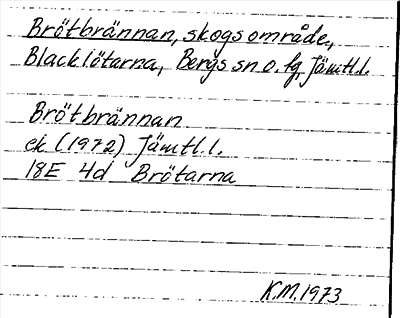 Brötbrännan, skogsområde,
Blacklötarna, Bergs sn o. fg, Jämtl.l.
Brötbrännan
ek (1972) Jämtl.l.
18E 4d Brötarna
K.M. 1973